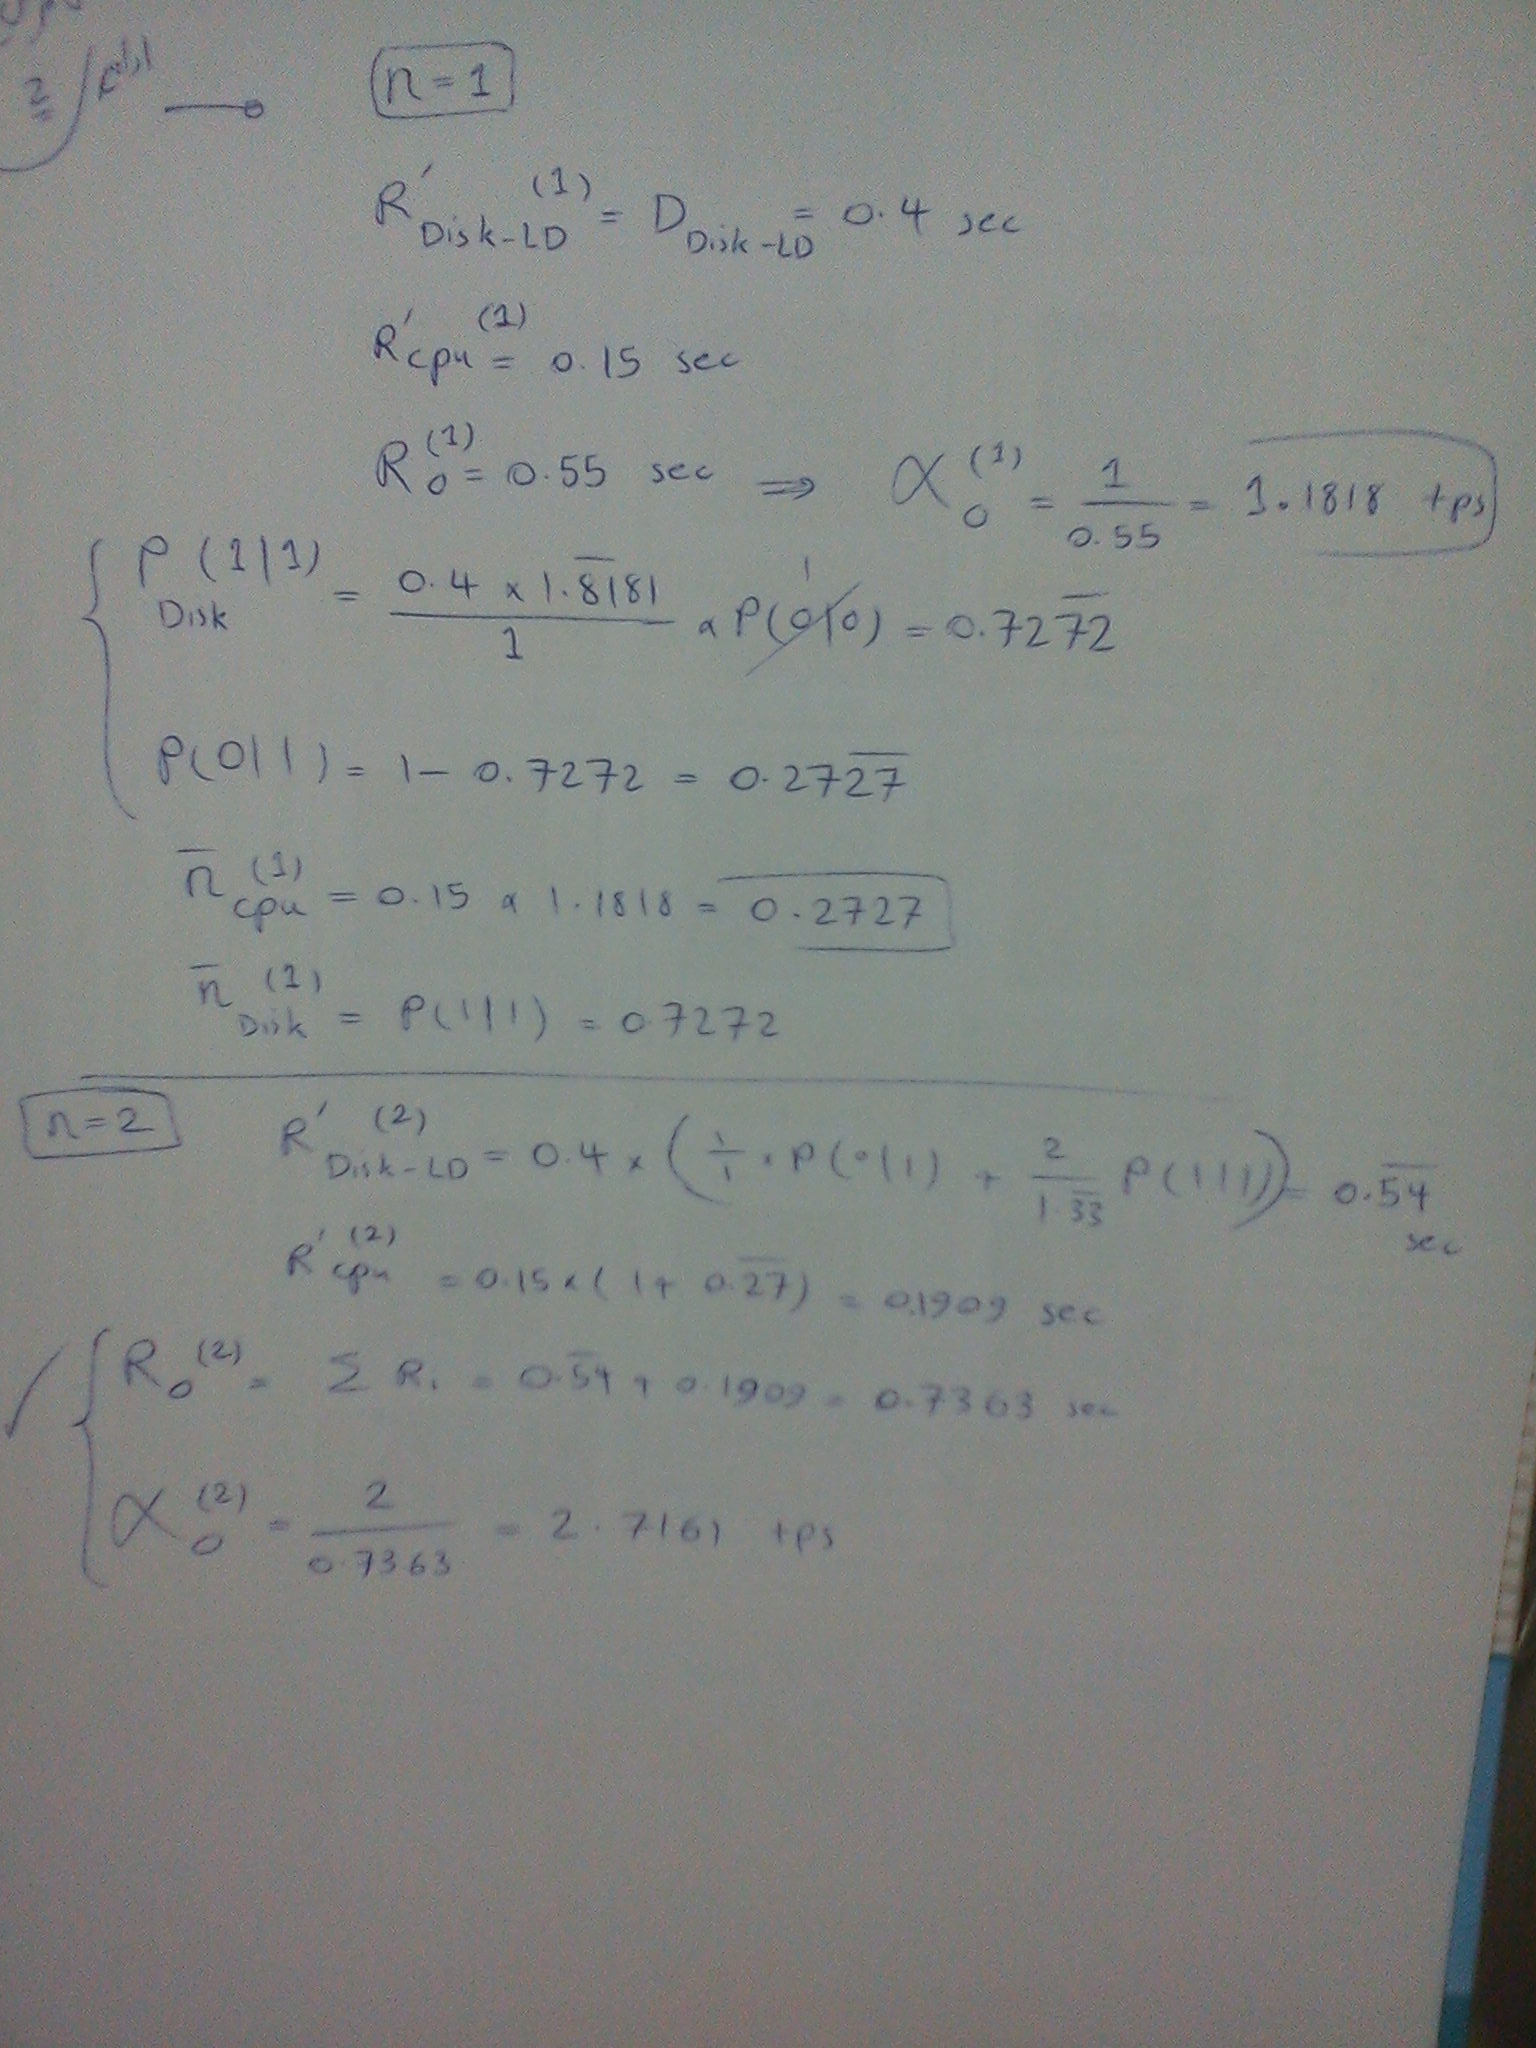 n = 1
R′Disk-LD (1) = D Disk-LD = 0.4 sec
R′cpu (1) = 0.15 sec
R0 (1) = 0.55 sec ⇒ X0 (1) = 1/0.55 = 1.1818 tps
P Disk (1|1) = (0.4 × 1.8̅1̅81)/1 × P(0|0) 1 = 0.727̅2̅
P(0|1) = 1 - 0.7272 = 0.272̅7̅
n̅cpu (1) = 0.15 × 1.1818 = 0.2727
n̅Disk (1) = P(1|1) = 0.7272
n=2
R′Disk-LD (2) = 0.4 × (1/1 · P(0|1) + 2/1.3̅3̅ P(1|1)) = 0.5̅4̅ sec
R′cpu (2) = 0.15 × (1 + 0.2̅7̅) = 0.1909 sec
R0 (2) = Σ Ri = 0.5̅4̅ + 0.1909 = 0.7363 sec
X0 (2) = 2/0.7363 = 2.7161 tps